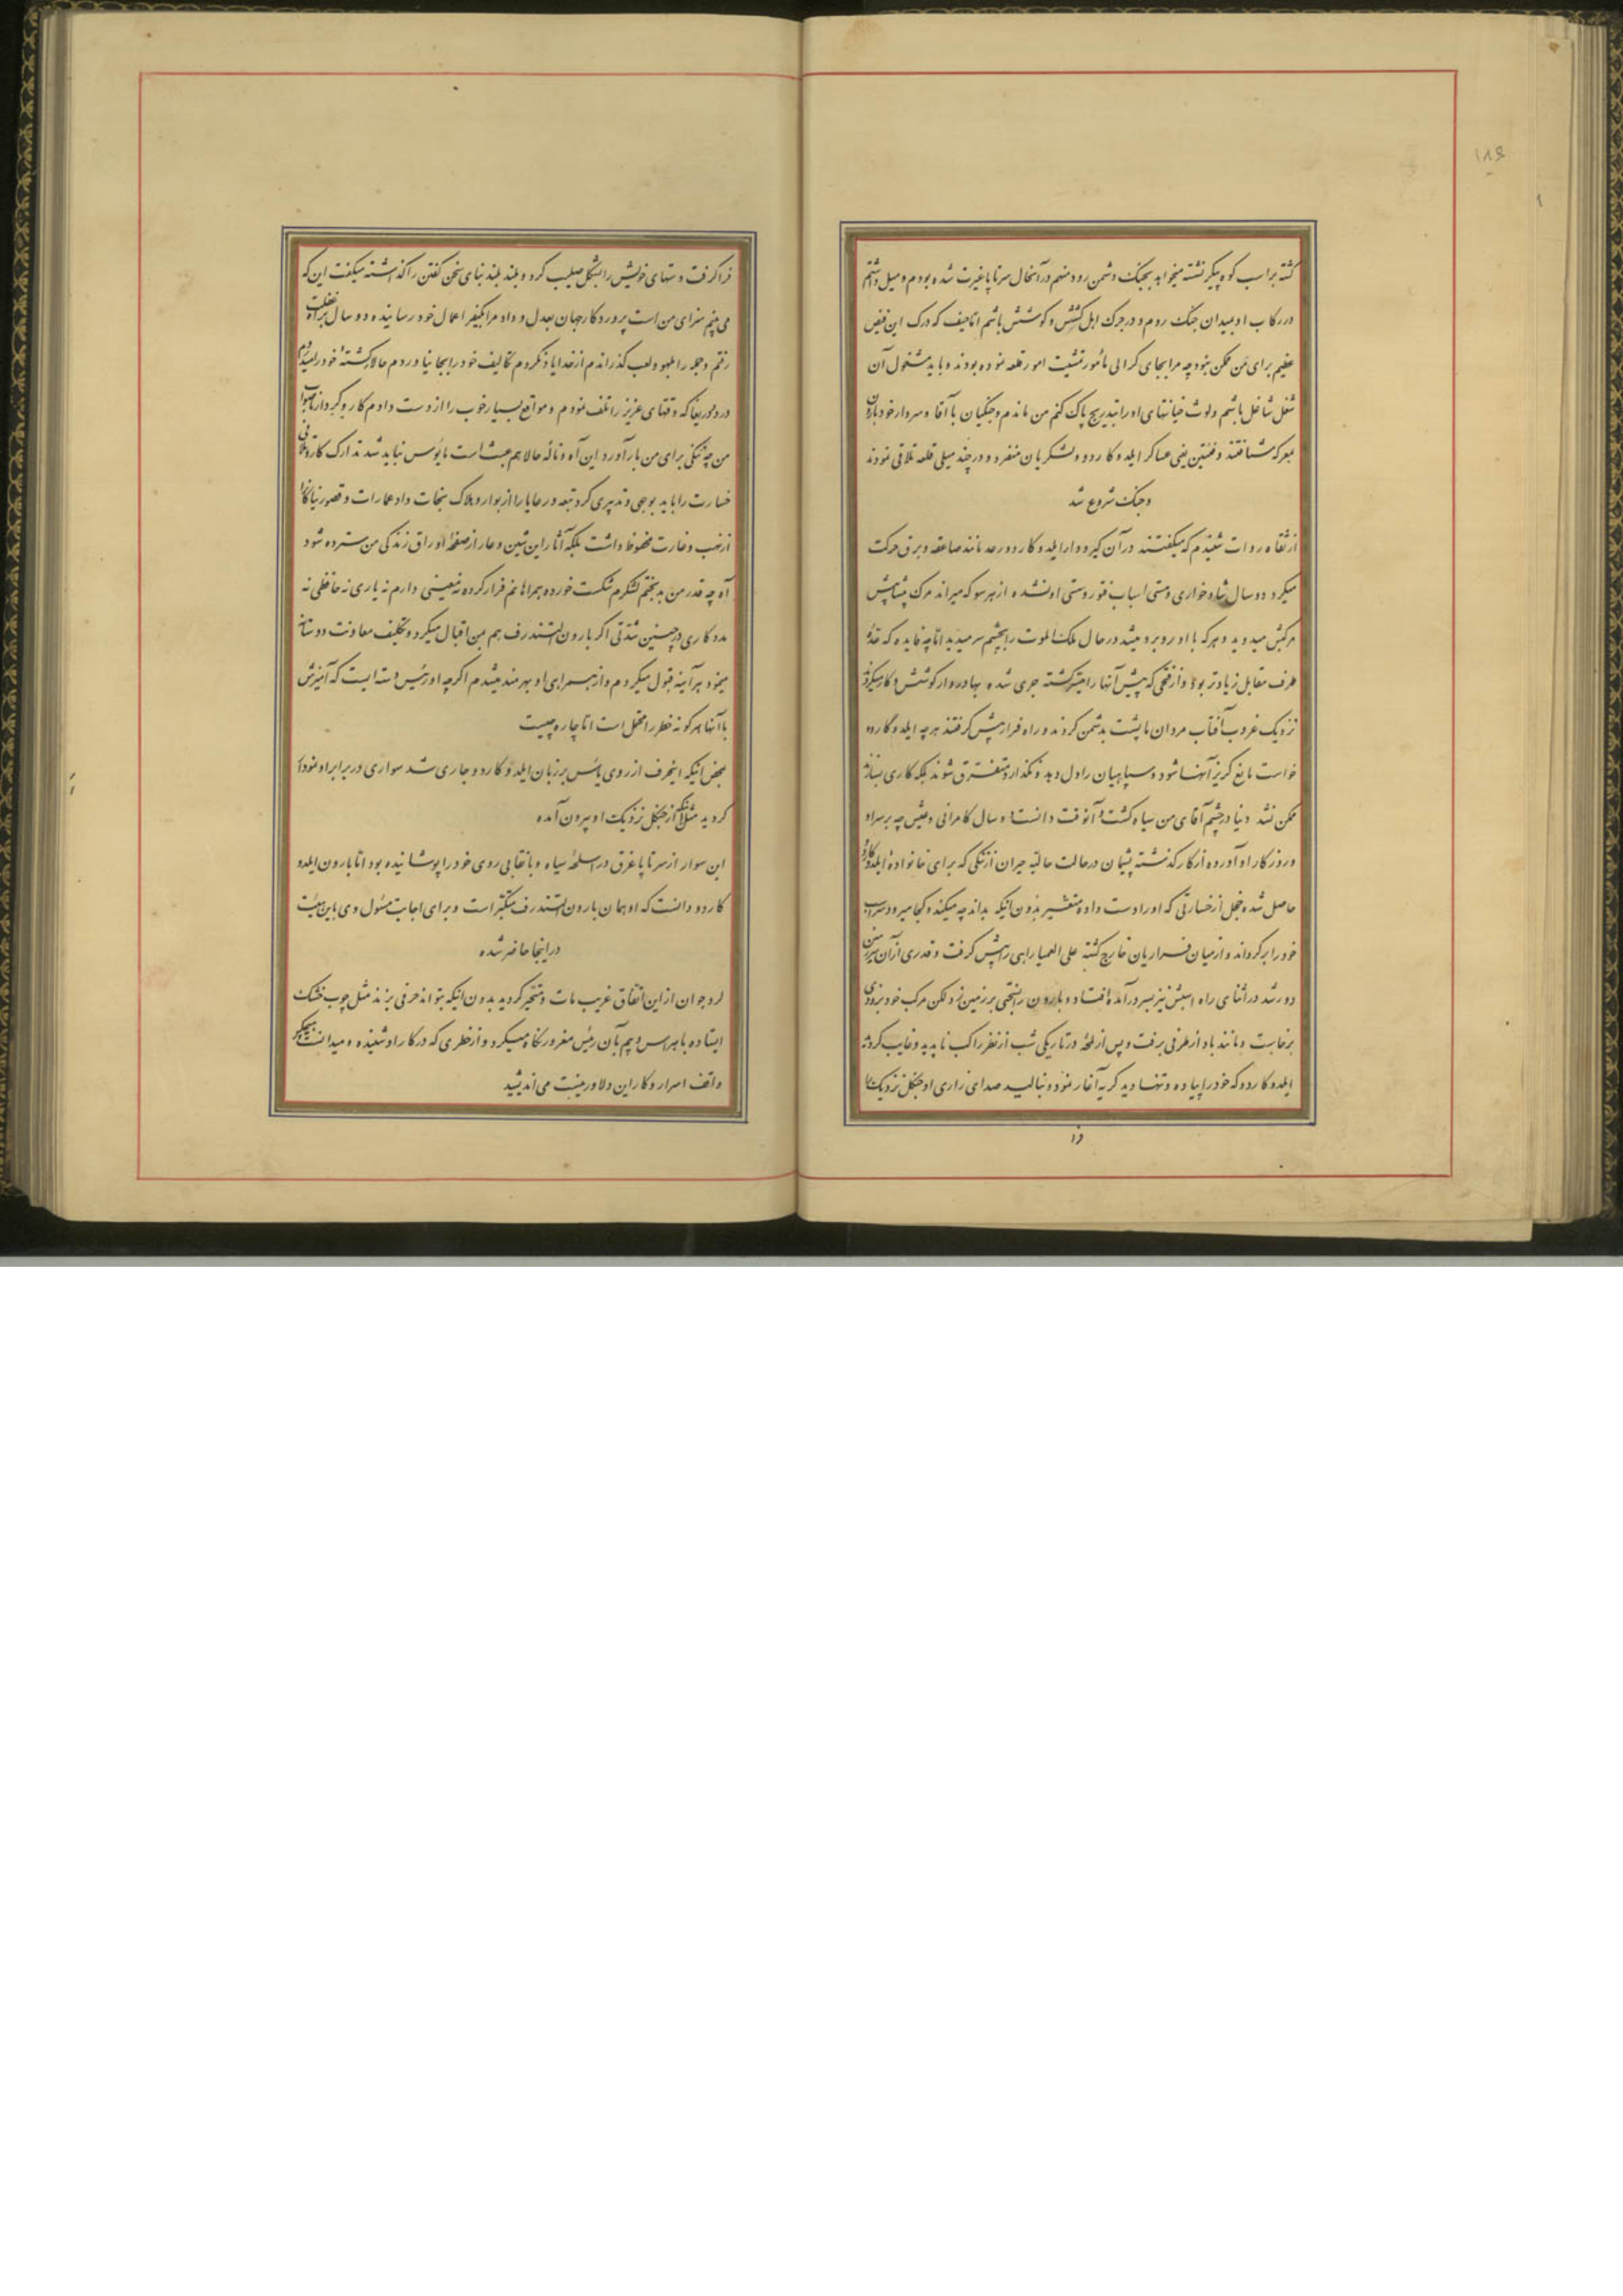 ۱۸۶
گشته بر اسب کوه پیکر نشسته میخواهد بجنگ دشمن رود منهم در آنحال سرتاپا غیرت شده بودم و میل داشتم
در رکاب او بمیدان جنگ روم و در جرک اهل کشش و کوشش باشم اما حیف که درک این فیض
عظیم برای من ممکن نبود چه مرا بجای کرالی مأمور تمشیت امور قلعه نموده بودند و باید مشغول آن
شغل شاغل باشم ولوث خیانتهای او را بتدریج پاک کنم من ماندم و جنگیان با آقا و سردار خود بارون
بمعرکه شتافتند و فئتین یعنی عساکر ایلدو کاردو ولشکریان منفرد و در چند میلی قلعه تلاقی نمودند
و جنگ شروع شد
از ثقاه روات شنیدم که میگفتند در آن گیرودار ایلدو کاردو رعد مانند صاعقه و برق حرکت
میکرد دو سال شادخواری و مستی اسباب فتور و سستی او نشده از هر سو که میراند مرگ پیشاپیش
مرکبش میدوید و هر که با او روبرو میشد در حال ملک الموت را بچشم سر میدید اما چه فایده که عدهٔ
طرف مقابل زیادتر بود و از فتحی که پیش آنها را میسر گشته جری شده بهادروار کوشش و کار میکردند
نزدیک غروب آفتاب مردان ما پشت بدشمن کردند و راه فرار پیش گرفتند هر چه ایلدو کاردو
خواست مانع گریز آنها شود و سپاهیان را دل دهد و نگذارد متفرق شوند بلکه کاری بسازند
ممکن نشد دنیا در چشم آقای من سیاه گشت و آنوقت دانست دو سال کامرانی و عیش چه بر سر او
و روزگار او آورده از کار گذشته پشیمان در حالت حالیه حیران از ننگی که برای خانوادهٔ ایلدو کاردو
حاصل شده خجل از خسارتی که او را دست داده متغیر بدون اینکه بداند چه میکند و کجا میرود سر اسب
خود را برگرداند و از میان فراریان خارج گشته علی العمیا راهی را پیش گرفت و قدری از آن سرزمین
دور شد در اثنای راه اسبش نیز بسر درآمده افتاد و بارون را بسختی بر زمین زد لکن مرکب خود بزودی
برخاست و مانند باد از طرفی برفت و پس از لحظهٔ در تاریکی شب از نظر راکب ناپدید و غایب گردید
ایلدو کاردو که خود را پیاده و تنها دید گریه آغاز نمود و نبالید صدای زاری او جنگل نزدیک را
فرا گرفت دستهای خویش را بشکل صلیب کرد و بلند بلند بنای سخن گفتن را گذاشته میگفت این که
می بینم سزای من است پروردگار جهان بعدل و داد مرا بکیفر اعمال خود رسانیده دو سال براه غفلت
رفتم و جمله را بلهو و لعب گذراندم از خدا یاد نکردم تکالیف خود را بجا نیاوردم حالا کشتهٔ خود را میدروم
درد و دریغا که وقتهای عزیز را تلف نمودم و مواقع بسیار خوب را از دست دادم کار و کردار ناصواب
من چه ننگی برای من بار آورد این آه و ناله حالا هم عبث است مأیوس نباید شد تدارک کار و تلافی
خسارت را باید بوجهی و تدبیری کرد تبعه و رعایا را از بوار و هلاک نجات داد عمارات و قصور نیاکان را
از نهب و غارت محفوظ داشت بلکه آثار این شین و عار از صفحهٔ اوراق زندگی من سترده شود
آه چه قدر من بدبختم لشکرم شکست خورده همراهانم فرار کرده نه معینی دارم نه یاری نه حافظی نه
مددکاری در چنین شدتی اگر بارون لشتندرف هم بمن اقبال میکرد و تکلیف معاونت دوستانه
مینمود هر آینه قبول میکردم و از همراهی او بهره مند میشدم اگرچه او رئیس دسته ایست که آمیزش
با آنها هر گونه خطر را محتمل است اما چاره چیست
بمحض اینکه اینحرف از روی یأس بر زبان ایلدو کاردو جاری شد سواری در برابر او نمودار
گردید مثل اینکه از جنگل نزدیک او بیرون آمده
این سوار از سرتاپا غرق در اسلحهٔ سیاه و با نقابی روی خود را پوشانیده بود اما بارون ایلدو
کاردو دانست که او همان بارون لشتندرف متکبر است و برای اجابت مسئول وی باین هیئت
در اینجا حاضر شده
لرد جوان از این اتفاق غریب مات و متحیر گردید بدون اینکه بتواند حرفی بزند مثل چوب خشک
ایستاده با هراس و بیم بآن رئیس مغرور نگاه میکرد و از خطری که در کار او شنیده و میدانست هیچکس
واقف اسرار و کار این دلاور نیست می اندیشید